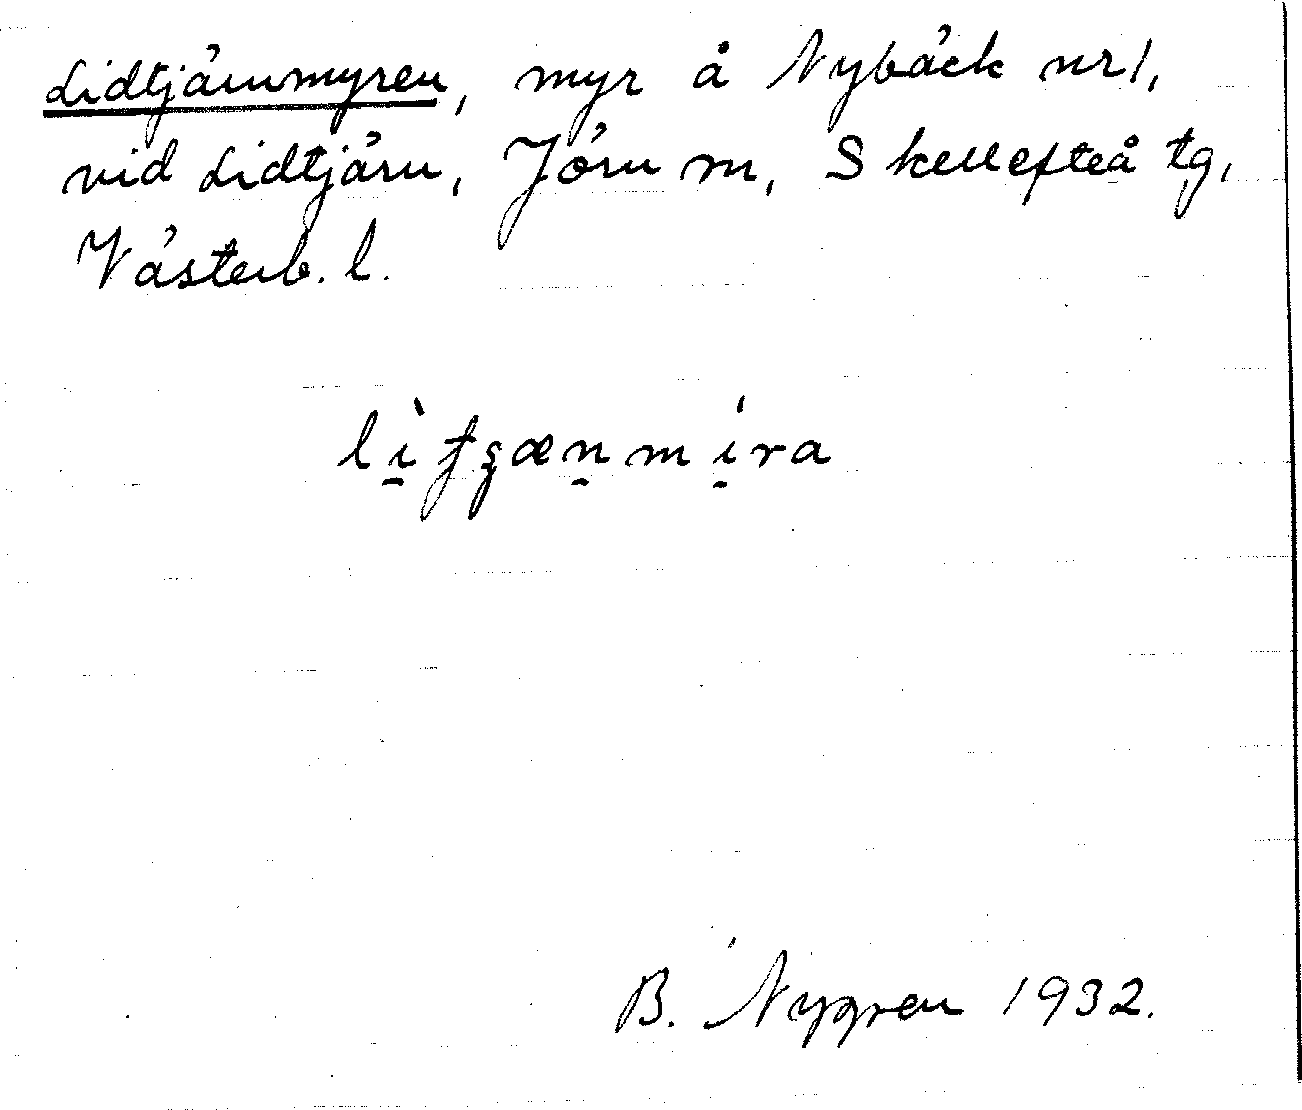 Lidtjärnmyren, myr å Nybäck nr 1,
vid Lidtjärn, Jörn sn, Skellefteå tg,
Västerb. l.
B. Nygren 1932.